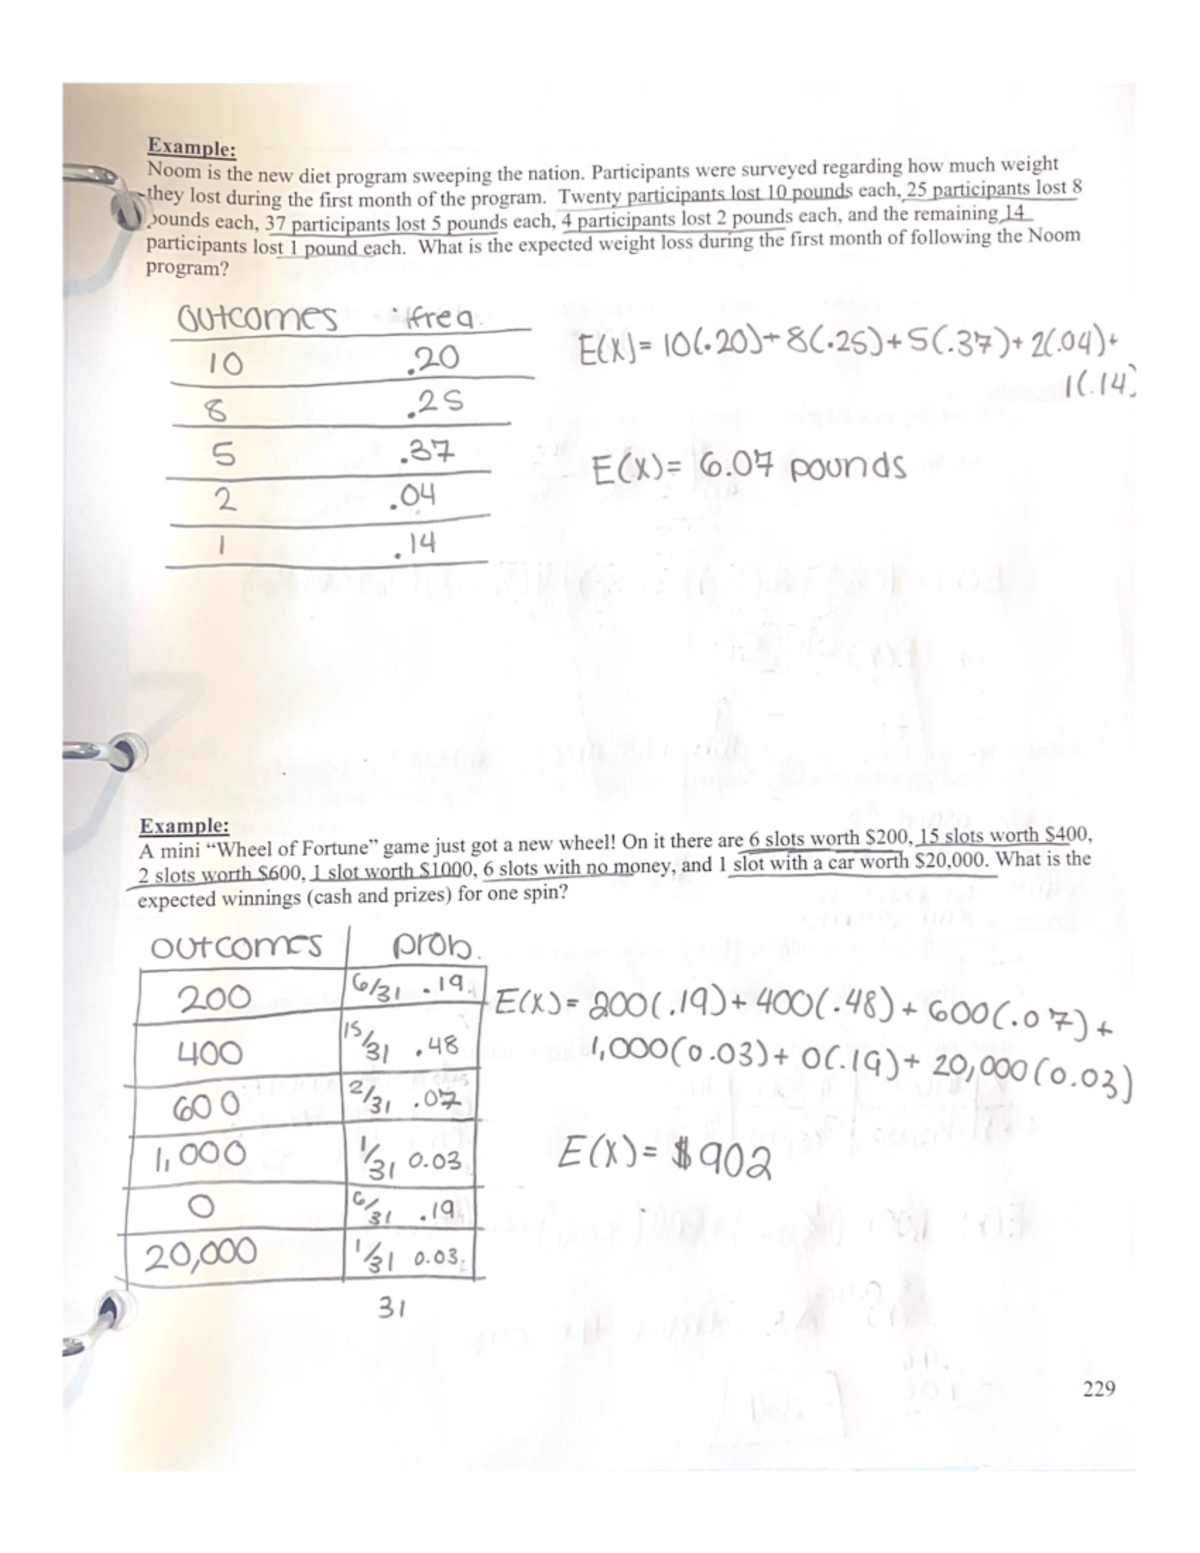 Example:
Noom is the new diet program sweeping the nation. Participants were surveyed regarding how much weight
they lost during the first month of the program. Twenty participants lost 10 pounds each, 25 participants lost 8
pounds each, 37 participants lost 5 pounds each, 4 participants lost 2 pounds each, and the remaining 14
participants lost 1 pound each. What is the expected weight loss during the first month of following the Noom
program?
outcomes freq.
10 .20
8 .25
5 .37
2 .04
1 .14
E(X)= 10(.20)+8(.25)+5(.37)+2(.04)+
1(.14)
E(X)= 6.07 pounds
Example:
A mini “Wheel of Fortune” game just got a new wheel! On it there are 6 slots worth $200, 15 slots worth $400,
2 slots worth $600, 1 slot worth $1000, 6 slots with no money, and 1 slot with a car worth $20,000. What is the
expected winnings (cash and prizes) for one spin?
outcomes prob.
200 6/31 .19
400 15/31 .48
600 2/31 .07
1,000 1/31 0.03
0 6/31 .19
20,000 1/31 0.03
31
E(X)= 200(.19)+400(.48)+600(.07)+
1,000(0.03)+0(.19)+20,000(0.03)
E(X)= $902
229